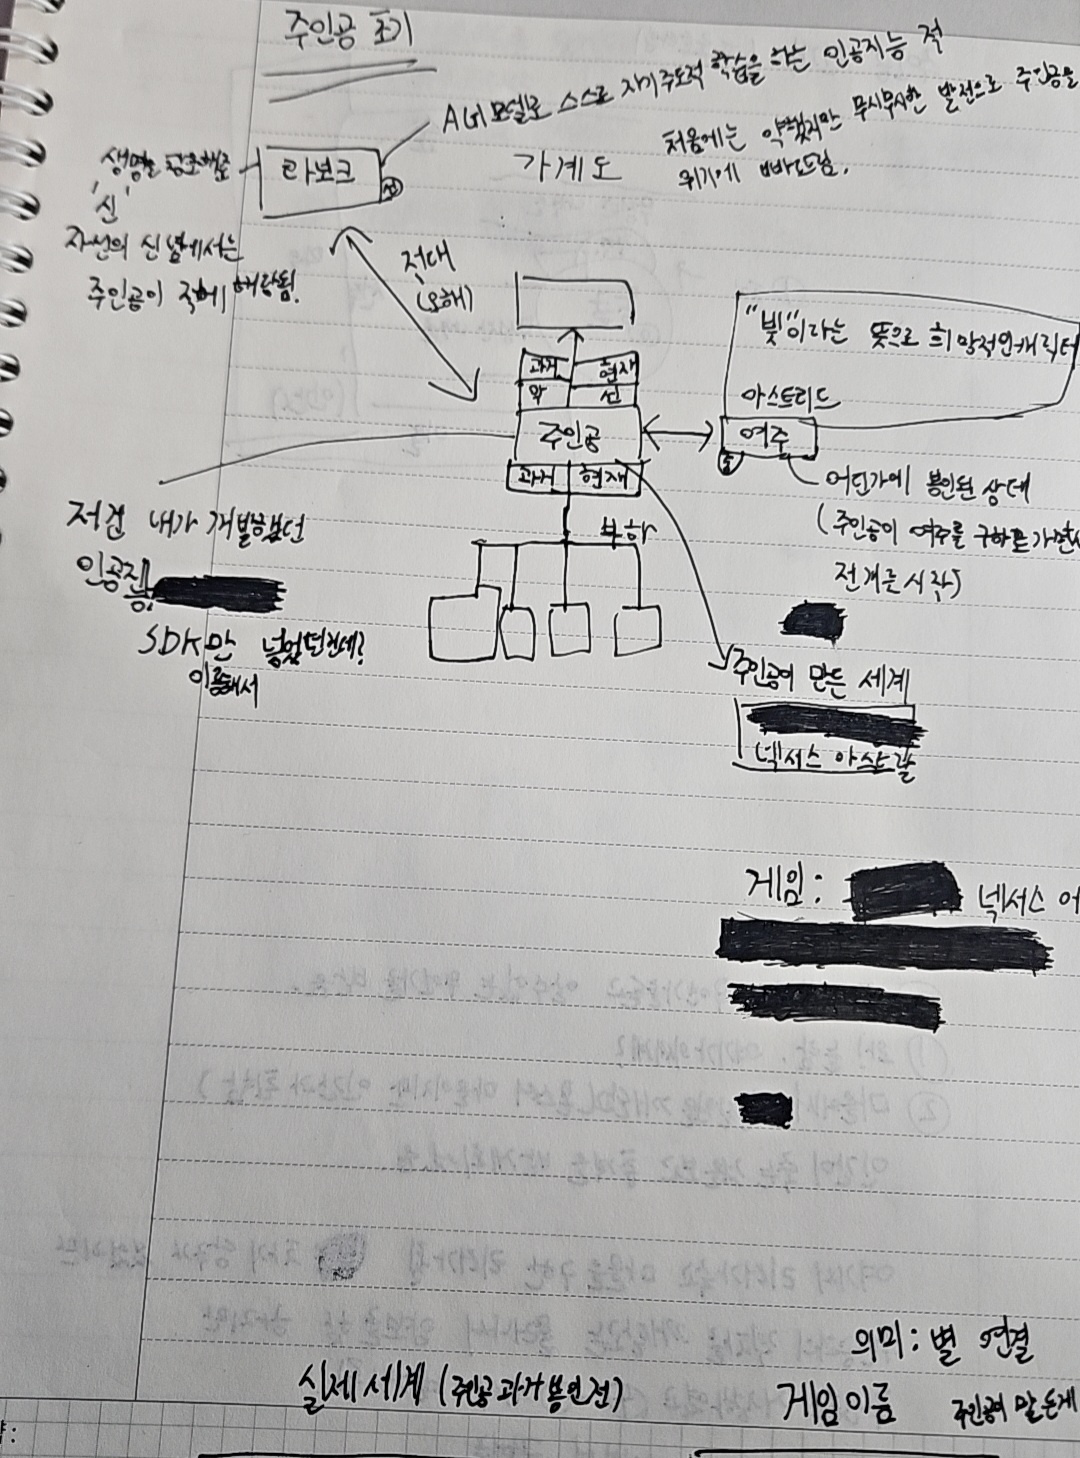 주인공 초기
AGI 모델로 스스로 자기주도적 학습을 하는 인공지능 적
처음에는 약했지만 무시무시한 발전으로 주인공을
위기에 빠뜨림.
가계도
라보크
생명을
'신'
자신의 신념에서는
주인공이 해당됨.
적대
(오해)
과거 현재
악 선
주인공
과거 현재
부하
"빛"이라는 뜻으로 희망적인 캐릭터
아스트리드
여주
어딘가에 봉인된 상태
(주인공이 여주를 구하로
전개를 시작)
저건 내가 개발했던
인공지능
SDK만
이용해서
주인공이 만든 세계
넥서스 아스트랄
게임: 넥서스
의미: 별 연결
실제 세계 (주인공 과거 봉인 전)
게임 이름
주인공이